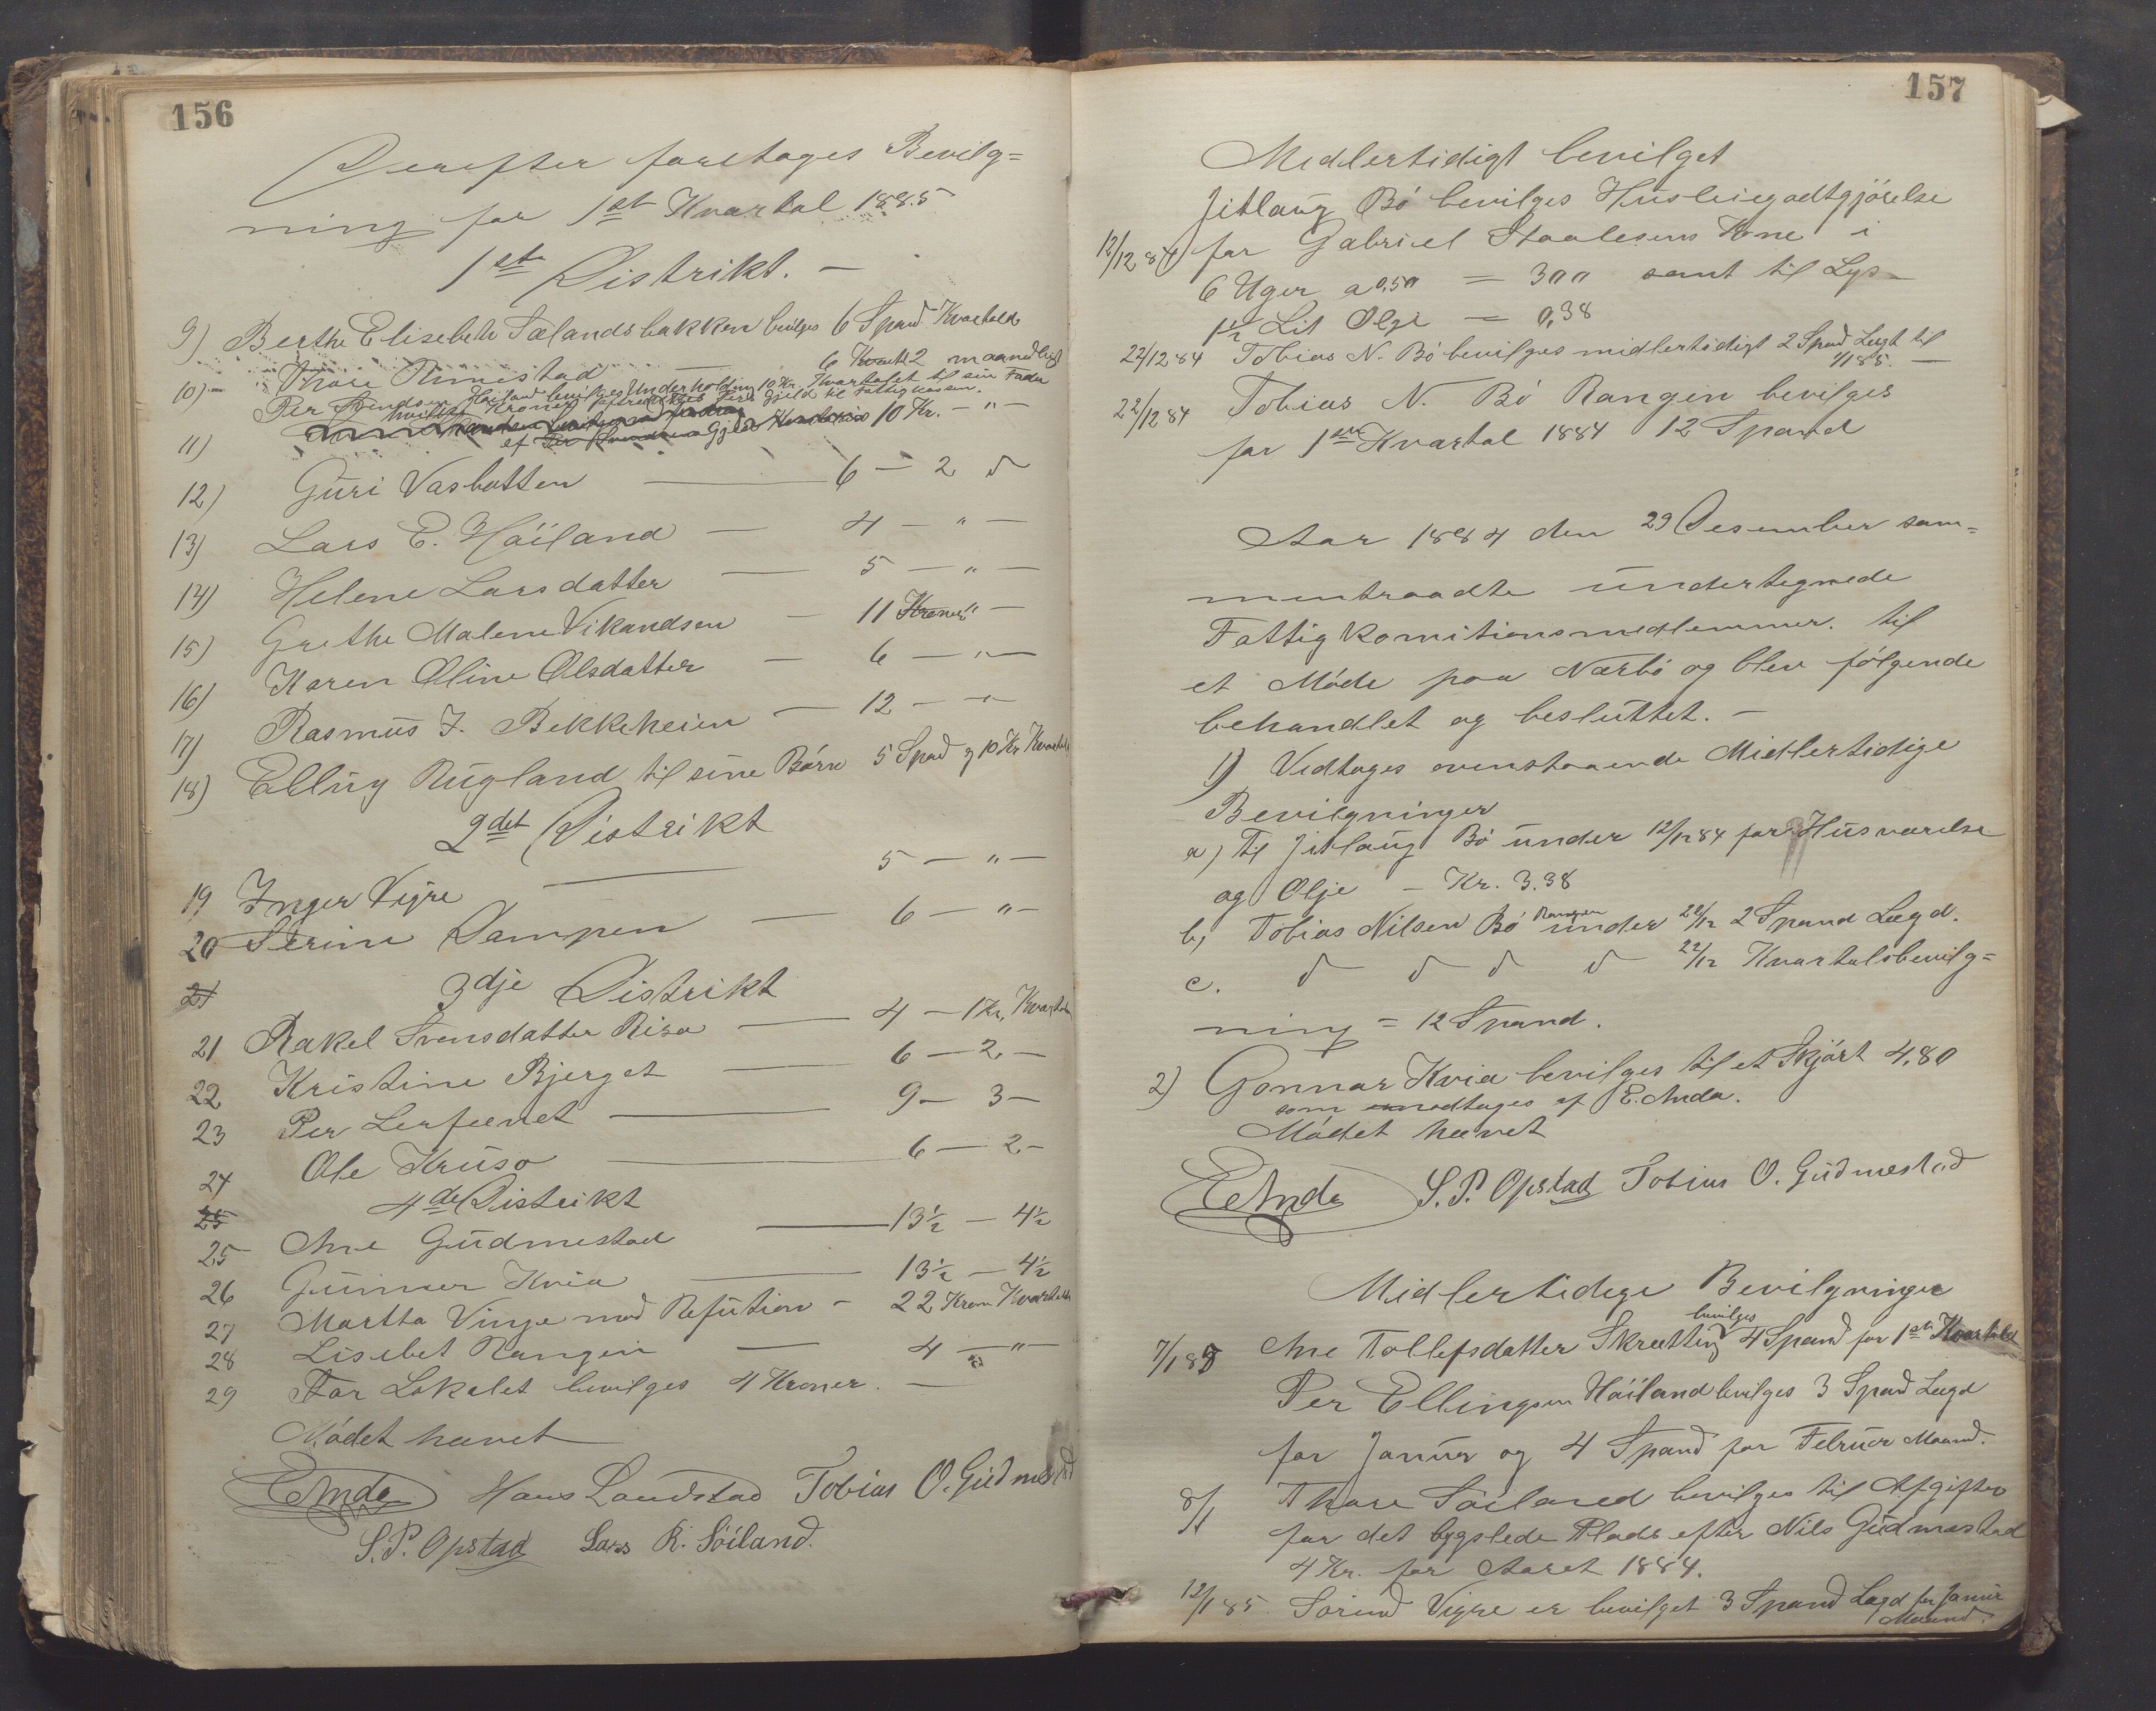 156
Derefter foretages Bevilg=
ning for 1ste Kvartal 1885
1ste Distrikt. —
9) Berthe Elisebeth Sælandsbakken bevilges 6 Spand Kvartalet
10) – Thore Timestad — 6 Kvartl 2 maanedligt
Per Svendsen Høiland bevilges Underholdning 10 Kr. Kvartalet til sin Fader
hvilke Kroner Gjeld til Fattigkassen.
11) 10 Kr. – " –
12) Guri Vasbotten — 6 – 2 d
13) Lars E. Höiland — 4 – " –
14) Helene Larsdatter — 5 – " –
15) Grethe Malene Vikandsen — 11 Kroner " –
16) Karen Oline Olsdatter — 6 – " –
17) Rasmus J. Bekkeheien — 12 – " –
18) Elling Rugland til sine Börn 5 Spad og 10 Kr Kvartalet
2det Distrikt
19 Inger Vigre — 5 – " –
20 Serine Dampen — 6 – " –
21
3dje Distrikt
21 Rakel Svensdatter Risa — 4 – 1 Kr, Kvartalet
22 Kristine Bjerget — 6 – 2 –
23 Per Lerfeenet — 9 – 3 –
24 Ole Kruso — 6 – 2 –
25
4de Distrikt
25 Ane Gudmestad — 13½ – 4½
26 Gunner Kvia — 13½ – 4½
27 Martha Vinje mod Refution – 22 Kron Kvartalet
28 Lisebet Rangen — 4 – " –
29 For Lokalet bevilges 4 Kroner. —
Mödet hævet
E Anda Hans Laudstad Tobias O. Gudmestad
S. P. Opstad Lars R. Söiland.
157
Midlertidigt bevilget
Jitlaug Bö bevilges Husleiegodtgjörelse
12/12 84 for Gabriel Staalesens Kone i
6 Uger a 0,50 = 3 00 samt til Lys –
1½ Lit Olje — 0,38
22/12 84 Tobias N. Bö bevilges midlertidigt 2 Spad Lægt til
1/1 85. —
22/12 84 Tobias N. Bö Rangen bevilges
for 1ste Kvartal 1884 12 Spand
Aar 1884 den 29 Desember sam=
mentraadte undertegnede
Fattigkomitionsmedlemmer. til
et Möde paa Nærbö og blev fölgende
behandlet og besluttet. —
1) Vedtages ovenstaaende Midlertidige
Bevilgninger
a) til Jitlaug Bö under 12/12 84 for Husværelse
og Olje – Kr. 3.38
b, Tobias Nilsen Bö Rangen under 22/12 2 Spand Lægd.
c. d d d d 22/12 Kvartalsbevilg=
ning = 12 Spand.
2) Gonnar Kvia bevilges til et Skjört 4,80
som modtages af E. Anda.
Mödet hævet
E Anda S. P. Opstad Tobias O. Gudmestad
Midlertidige Bevilgninger
7/1 85 Ane Tollefsdatter Skrætting bevilges 4 Spand for 1ste Kvartal
Per Ellingsen Höiland bevilges 3 Spad Lægd
for Januar og 4 Spand for Februar Maand.
8/1 Thore Söiland bevilges til Afgifter
for det bygslede Plads efter Nils Gudmestad
4 Kr. for Aaret 1884.
12/1 85. Sörine Vigre er bevilget 3 Spand Lægd for Januar
Maaned.